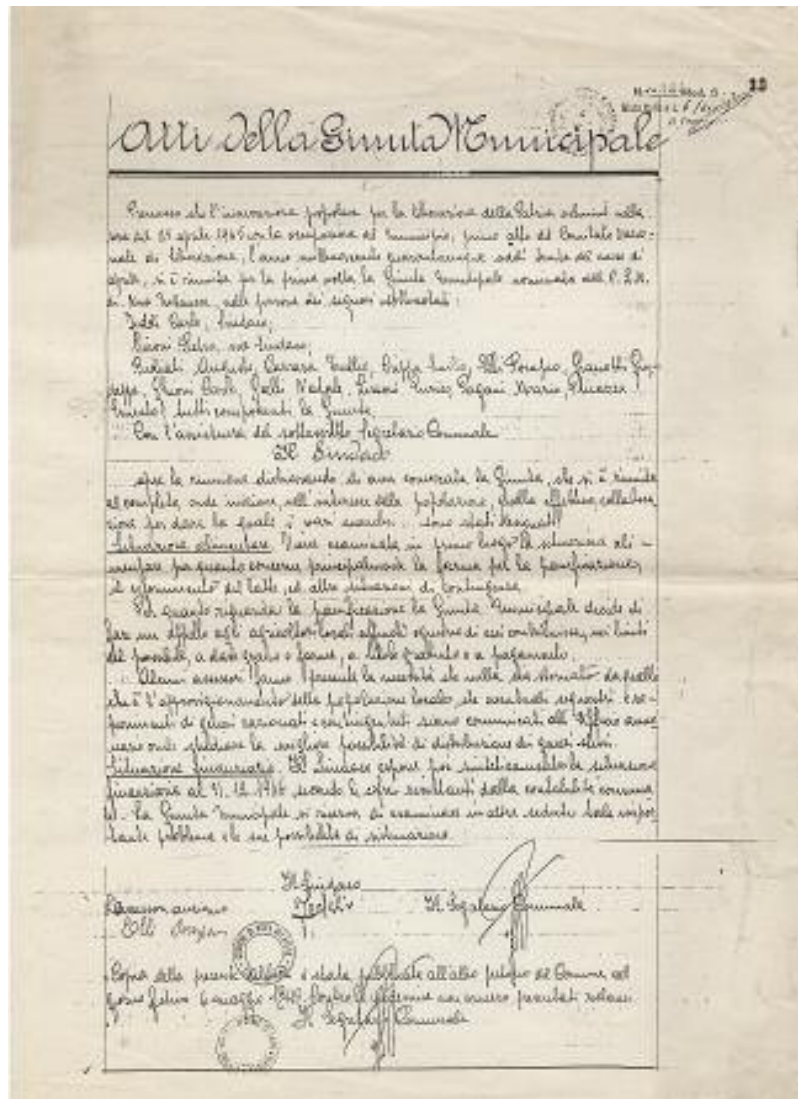 33
Atti della Giunta Municipale
Premesso che l'insurrezione popolare per la liberazione della Patria culminò nella
sera del 25 aprile 1945 con la occupazione del Municipio, primo atto del Comitato Nazio-
nale di Liberazione, l'anno millenovecento quarantacinque addì trenta del mese di
aprile, si è riunita per la prima volta la Giunta Municipale nominata dal C.L.N.
di Nova Milanese, nelle persone dei signori sottonotati:
Carlo, Sindaco;
Pietro, vice Sindaco;
Augusto, Carrara Tullio, Elli Gio-
Galli Natale, Enrico, Pagani Mario,
Ernesto, tutti componenti la Giunta.
Con l'assistenza del sottoscritto Segretario Comunale
Il Sindaco
apre la riunione dichiarando di aver convocata la Giunta, che si è riunita
al completo, onde iniziare, nell'interesse della popolazione, quella effettiva collabora-
zione per dare la quale i vari membri sono stati designati.
Situazione alimentare. Viene esaminata in primo luogo la situazione ali-
mentare per quanto concerne principalmente la farina per la panificazione,
il rifornimento del latte, ed altre situazioni di contingenza.
Per quanto riguarda la panificazione la Giunta Municipale decide di
fare un appello agli agricoltori locali affinchè ognuno di essi contribuisca, nei limiti
del possibile, a dare grano o farina, a titolo gratuito o a pagamento.
Alcuni assessori fanno presente la necessità che nulla sia stornato da quello
che è l'approvvigionamento della popolazione locale, che eventuali sequestri e re-
perimenti di generi razionati e contingentati siano comunicati all'Ufficio anno-
nario onde studiare la migliore possibilità di distribuzione di questi stessi.
Situazione finanziaria. Il Sindaco espone poi sinteticamente la situazione
finanziaria al 31.12.1944, secondo le cifre risultanti dalla contabilità comuna-
le. La Giunta Municipale si riserva di esaminare in altre sedute tale impor-
tante problema e le sue possibilità di
Il Sindaco
L'assessore anziano
Il Segretario Comunale
Elli
Copia della presente delibera è stata pubblicata all'albo pretorio del Comune nel
giorno festivo 6 maggio 1945. Contro la medesima non vennero presentati reclami.
Il Segretario Comunale